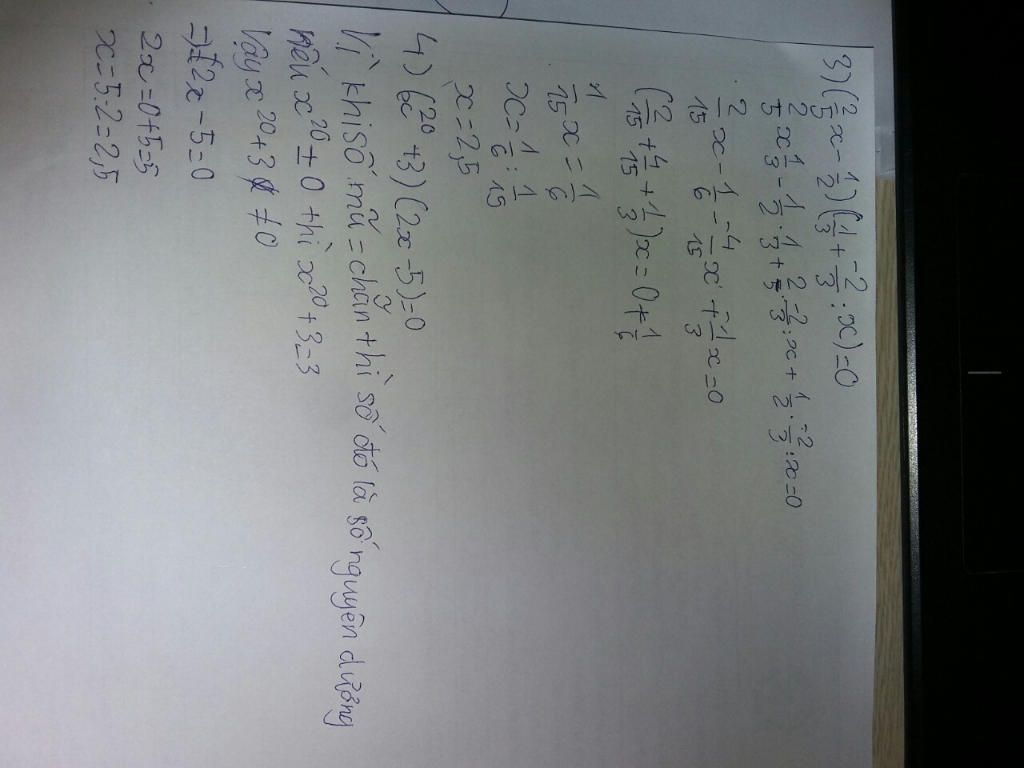 3) (2/5 x - 1/2) (1/3 + -2/3 : x) = 0
2/5 x 1/3 - 1/2 . 1/3 + 2/5 . -2/3 : x + 1/2 . -2/3 : x = 0
2/15 x - 1/6 - -4/15 x + -1/3 x = 0
(2/15 + 4/15 + 1/3) x = 0 + 1/6
1/15 x = 1/6
x = 1/6 : 1/15
x = 2,5
4) (x²⁰ + 3) (2x - 5) = 0
Vì khi số mũ = chẵn thì số đó là số nguyên dương
nếu x²⁰ ± 0 thì x²⁰ + 3 = 3
Vậy x²⁰ + 3 ≠ 0
=> 2x - 5 = 0
2x = 0 + 5 = 5
x = 5 : 2 = 2,5